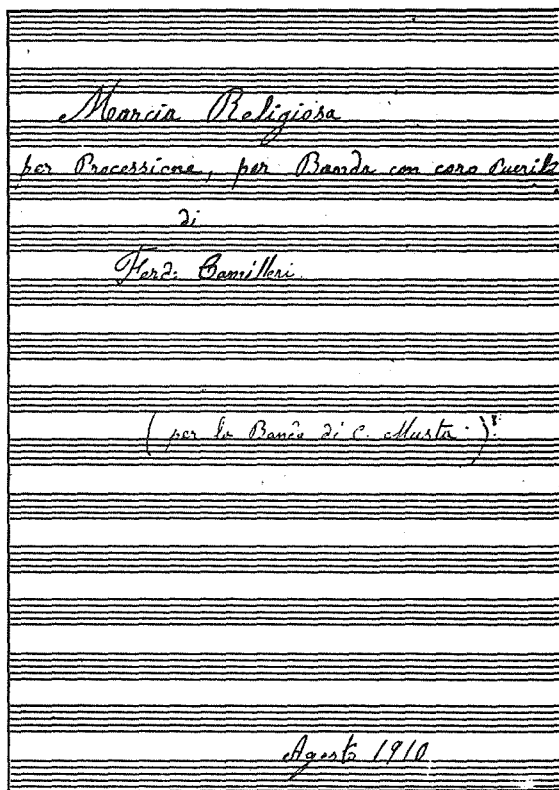 Marcia Religiosa
per Processione, per Banda con coro Puerile
di
Ferd: Camilleri.
(per la Banda di C. Musta)
Agosto 1910